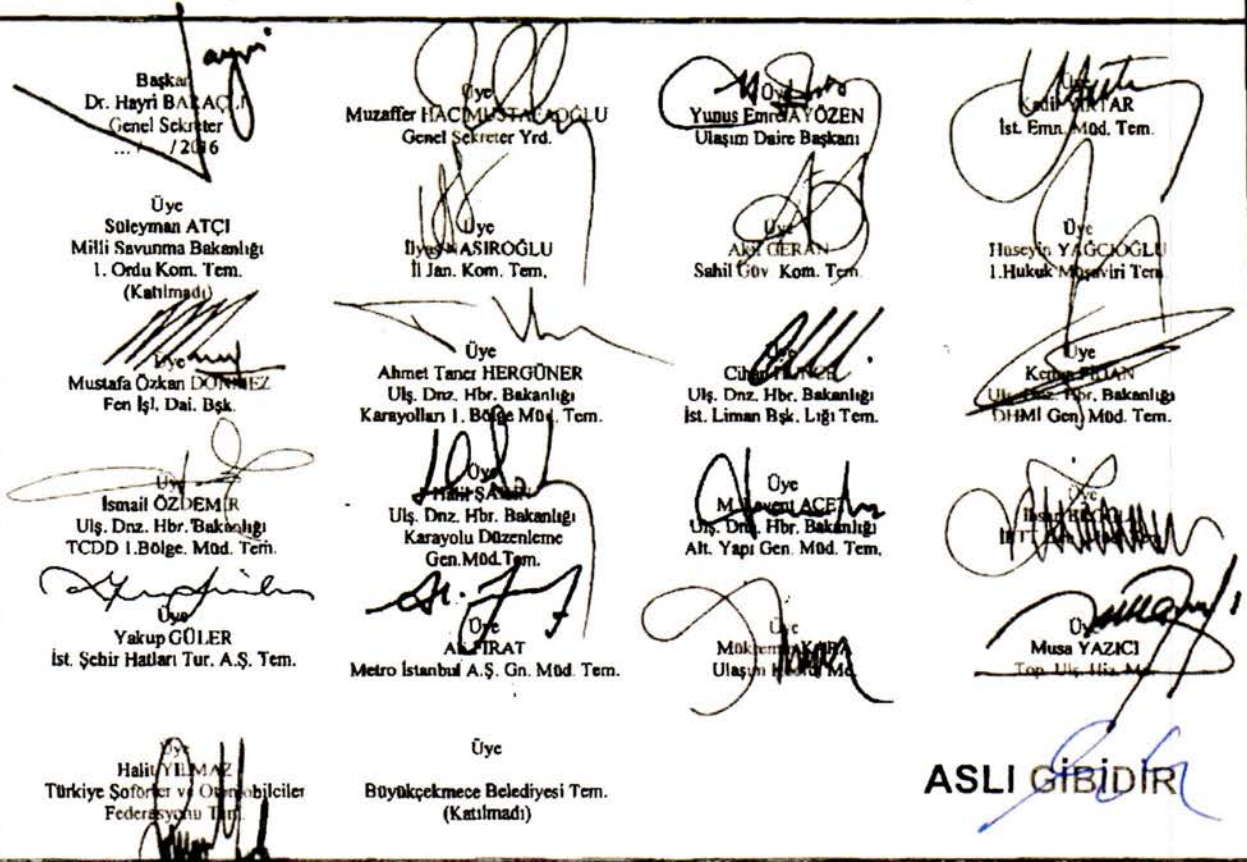 Başkan
Dr. Hayri BARAÇLI
Genel Sekreter
... / / 2016
Üye
Muzaffer HACIMUSTAFAOĞLU
Genel Sekreter Yrd.
Üye
Yunus Emre AYÖZEN
Ulaşım Daire Başkanı
Üye
Kadir
İst. Emn. Müd. Tem.
Üye
Süleyman ATÇI
Milli Savunma Bakanlığı
1. Ordu Kom. Tem.
(Katılmadı)
Üye
İlyas NASIROĞLU
İl Jan. Kom. Tem.
Üye
GERAN
Sahil Güv. Kom. Tem.
Üye
Hüseyin YAĞCIOĞLU
1.Hukuk Müşaviri Tem.
Üye
Mustafa Özkan DÖNMEZ
Fen İşl. Dai. Bşk.
Üye
Ahmet Taner HERGÜNER
Ulş. Dnz. Hbr. Bakanlığı
Karayolları 1. Bölge Müd. Tem.
Üye
Cihan
Ulş. Dnz. Hbr. Bakanlığı
İst. Liman Bşk. Lığı Tem.
Üye
Ulş. Dnz. Hbr. Bakanlığı
DHMİ Gen. Müd. Tem.
Üye
İsmail ÖZDEMİR
Ulş. Dnz. Hbr. Bakanlığı
TCDD 1.Bölge. Müd. Tem.
Üye
Halil ŞAHİN
Ulş. Dnz. Hbr. Bakanlığı
Karayolu Düzenleme
Gen.Müd.Tem.
Üye
M. Levent
Ulş. Dnz. Hbr. Bakanlığı
Alt. Yapı Gen. Müd. Tem.
Üye
Üye
Yakup GÜLER
İst. Şehir Hatları Tur. A.Ş. Tem.
Üye
Ali FIRAT
Metro İstanbul A.Ş. Gn. Müd. Tem.
Üye
KARA
Ulaşım
Üye
Musa YAZICI
Top. Ulş. Hiz. Md.
Üye
Halit YILMAZ
Türkiye Şoförler ve Otomobilciler
Federasyonu Tem.
Üye
Büyükçekmece Belediyesi Tem.
(Katılmadı)
ASLI GİBİDİR